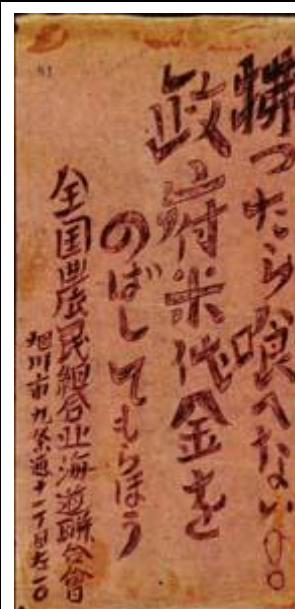 拂つたら喰へない。
政府米代金を
のばしてもらほう
全国農民組合北海道聯合會
旭川市九条通十一丁目左一〇
41